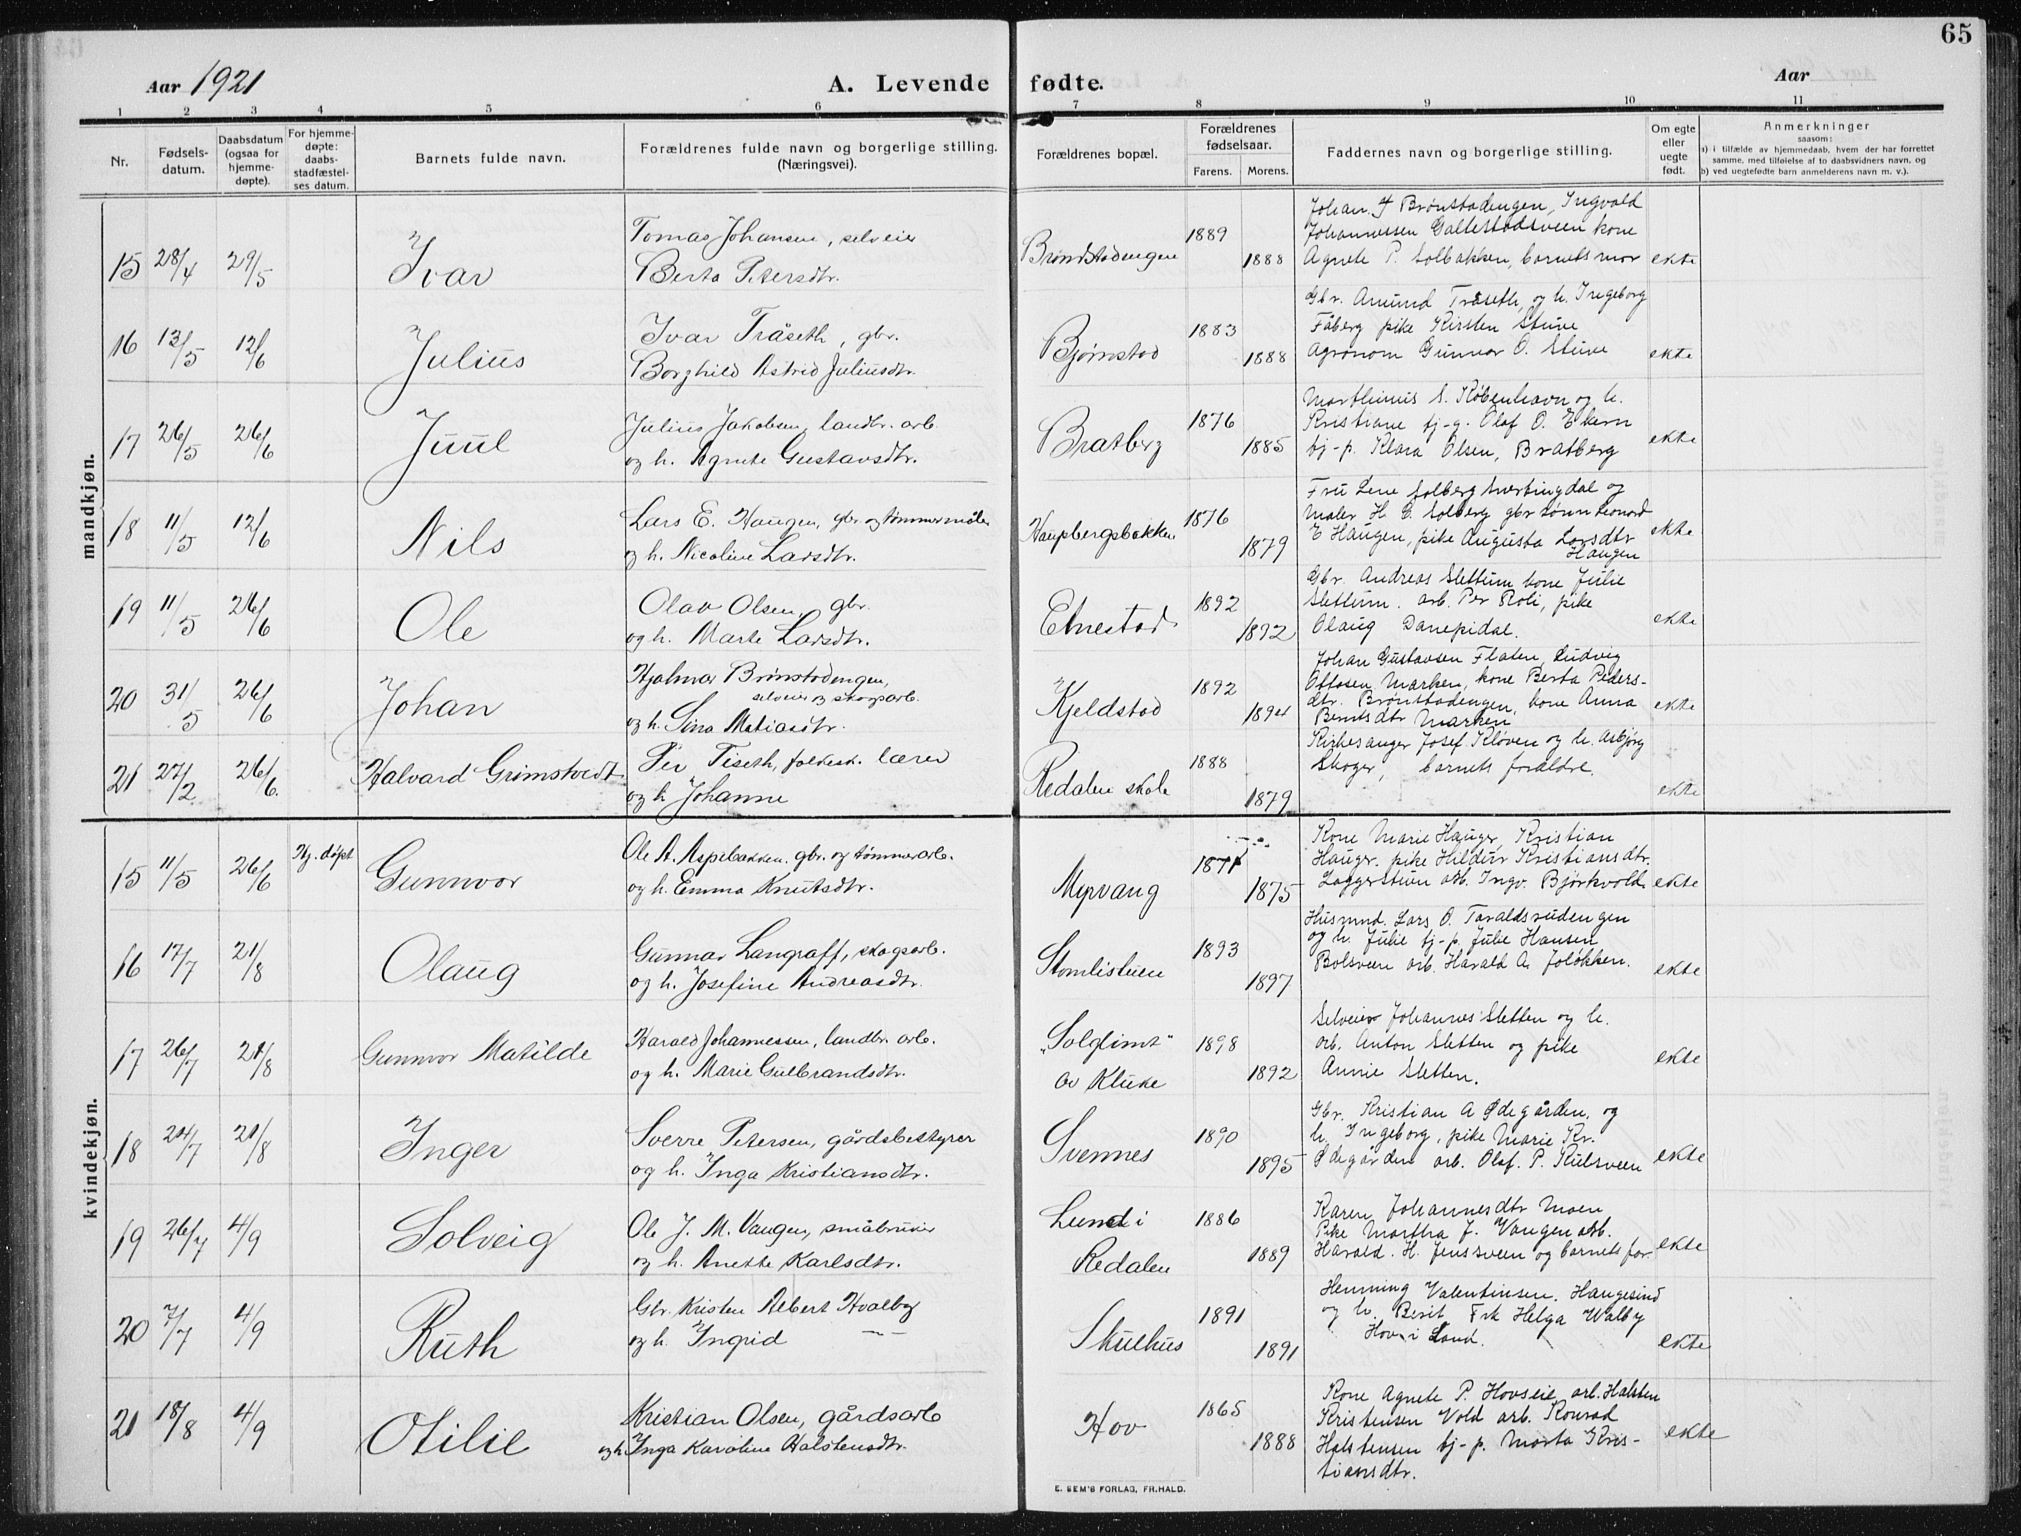 65
Aar 1921
A. Levende fødte.
Aar
1 2 3 4 5 6 7 8 9 10 11
Nr.
Fødsels-
datum.
Daabsdatum
(ogsaa for
hjemme-
døpte).
For hjemme-
døpte:
daabs-
stadfæstel-
ses datum.
Barnets fulde navn.
Forældrenes fulde navn og borgerlige stilling.
(Næringsvei).
Forældrenes bopæl.
Forældrenes
fødselsaar.
Farens. Morens.
Faddernes navn og borgerlige stilling.
Om egte
eller
uegte
født.
Anmerkninger
saasom:
a) i tilfælde av hjemmedaab, hvem der har forrettet
samme, med tilføielse af to daabsvidners navn, og
b) ved uegtefødte barn anmelderens navn m. v.).
mandkjøn.
15 28/4 29/5 Ivar
Tomas Johansen, selveier
Berta Petersdtr.
Brøndstadengen 1889 1888
Johan. Brønstadengen, Ingvald
Johannessen Galtestadsveen kone
Agnete P. Solbakken, barnets mor
ekte
16 13/5 12/6 Julius
Ivar Tråseth, gbr.
Borghild Astrid Juliusdtr.
Bjørnstad 1883 1888
Gbr. Amund Tråseth, og h. Ingeborg
Fåberg pike Kirsten Stuve
Agronom Gunnar O. Stuve
ekte
17 26/5 26/6 Juul
Julius Jakobsen, landbr. arb.
og h. Agnete Gustavsdtr.
Bratberg 1876 1885
Marthinus S. København og h.
Kristiane bj-g. Olaf O. Ekern
bj-p. Klara Olsen, Bratberg
ekte
18 11/5 12/6 Nils
Lars E. Haugen, gbr og tømmermåler
og h. Nicoline Larsdtr.
Haupbergsbakken 1876 1879
Fru Lene Solberg Snertingdal og
Maler H. G. Solberg gbr sønn Leonard
E Haugen, pike Augusta Larsdtr
Haugen
ekte
19 11/5 26/6 Ole
Olav Olsen, gbr.
og h. Marte Larsdtr.
Elnestad 1892 1892
Gbr. Andreas Slettum kone Julie
Slettum. arb. Per Roli, pike
Olaug
ekte
20 31/5 26/6 Johan
Hjalmar Brønstadengen,
selveier og skogsarb.
og h. Sina Matiasdtr.
Kjeldstad 1892 1894
Johan Gustavsen Flaten, Ludvig
Ottosen Marken, kone Berta Peders-
dtr. Brønstadengen, kone Anna
Berntsdtr Marken
ekte
21 27/2 26/6. Halvard Grimstvedt
Per Tiseth, folkesk. lærer
og h Johanne
Redalen skole 1888 1879
Kirkesanger Josef Kløven og h. Asbjørg
Skoger, barnets foraldre.
ekte
kvindekjøn.
15 11/5 26/6 Hj. døpt Gunnvor
Ole A. Aspebakken. gbr. og tømmerarb.
og h. Emma Knutsdtr.
Myrvang 1871 1875
Kone Marie Hauger, Kristian
Hauger. pike Hildur Kristiansdtr.
arb. Ingv. Bjørkvold.
ekte
16 17/7 21/8 Olaug
Gunnar Langraff, skogsarb.
og h. Josefine Andreasdtr.
Stomlistuen 1893 1897
Husmnd. Lars O. Taraldsrudengen
og h. Julie bj-p. Julie Hansen
Bolsveen arb. Harald A. Joløkken.
ekte
17 26/7 21/8 Gunnvor Matilde
Harald Johannessen, landbr. arb.
og h. Marie Gulbrandsdtr.
„Solglimt"
av Kluke 1898 1892
Selveier Johannes Sletten og h.
arb. Anton Sletten og pike
Annie Sletten.
ekte
18 24/7 21/8 Inger
Sverre Petersen, gårdsbestyrer
og h. Inga Kristiansdtr.
Svennes 1890 1895
Gbr. Kristian A Ødegården, og
h. Ingeborg, pike Marie Kr.
Ødegården arb. Olaf. P. Kulsveen
ekte
19 26/7 4/9 Solveig
Ole J. M. Vangen, småbruker
og h. Anette Karlsdtr.
Lund i
Redalen 1886 1889
Karen Johannesdtr Moen
Pike Martha J. Vangen arb.
Harald. H. Jensveen og barnets far.
ekte
20 7/7 4/9 Ruth
Gbr. Kristen Albert Hvalby
og h. Ingrid —
Skulhus 1891 1891
Henning Valentinsen. Haugesund
og h. Berit Frk Helga Walby
Hov i Land.
ekte
21 18/8 4/9 Otilie
Kristian Olsen, gårdsarb
og h. Inga Karoline Halstensdtr.
Hov 1865 1888
Kone Agnete P. Hovseie, arb. Halsten
Kristensen Vold arb. Konrad
Halstensen bj-p. Marta Kris-
tiansdtr.
ekte
E. SEM'S FORLAG, FR.HALD.